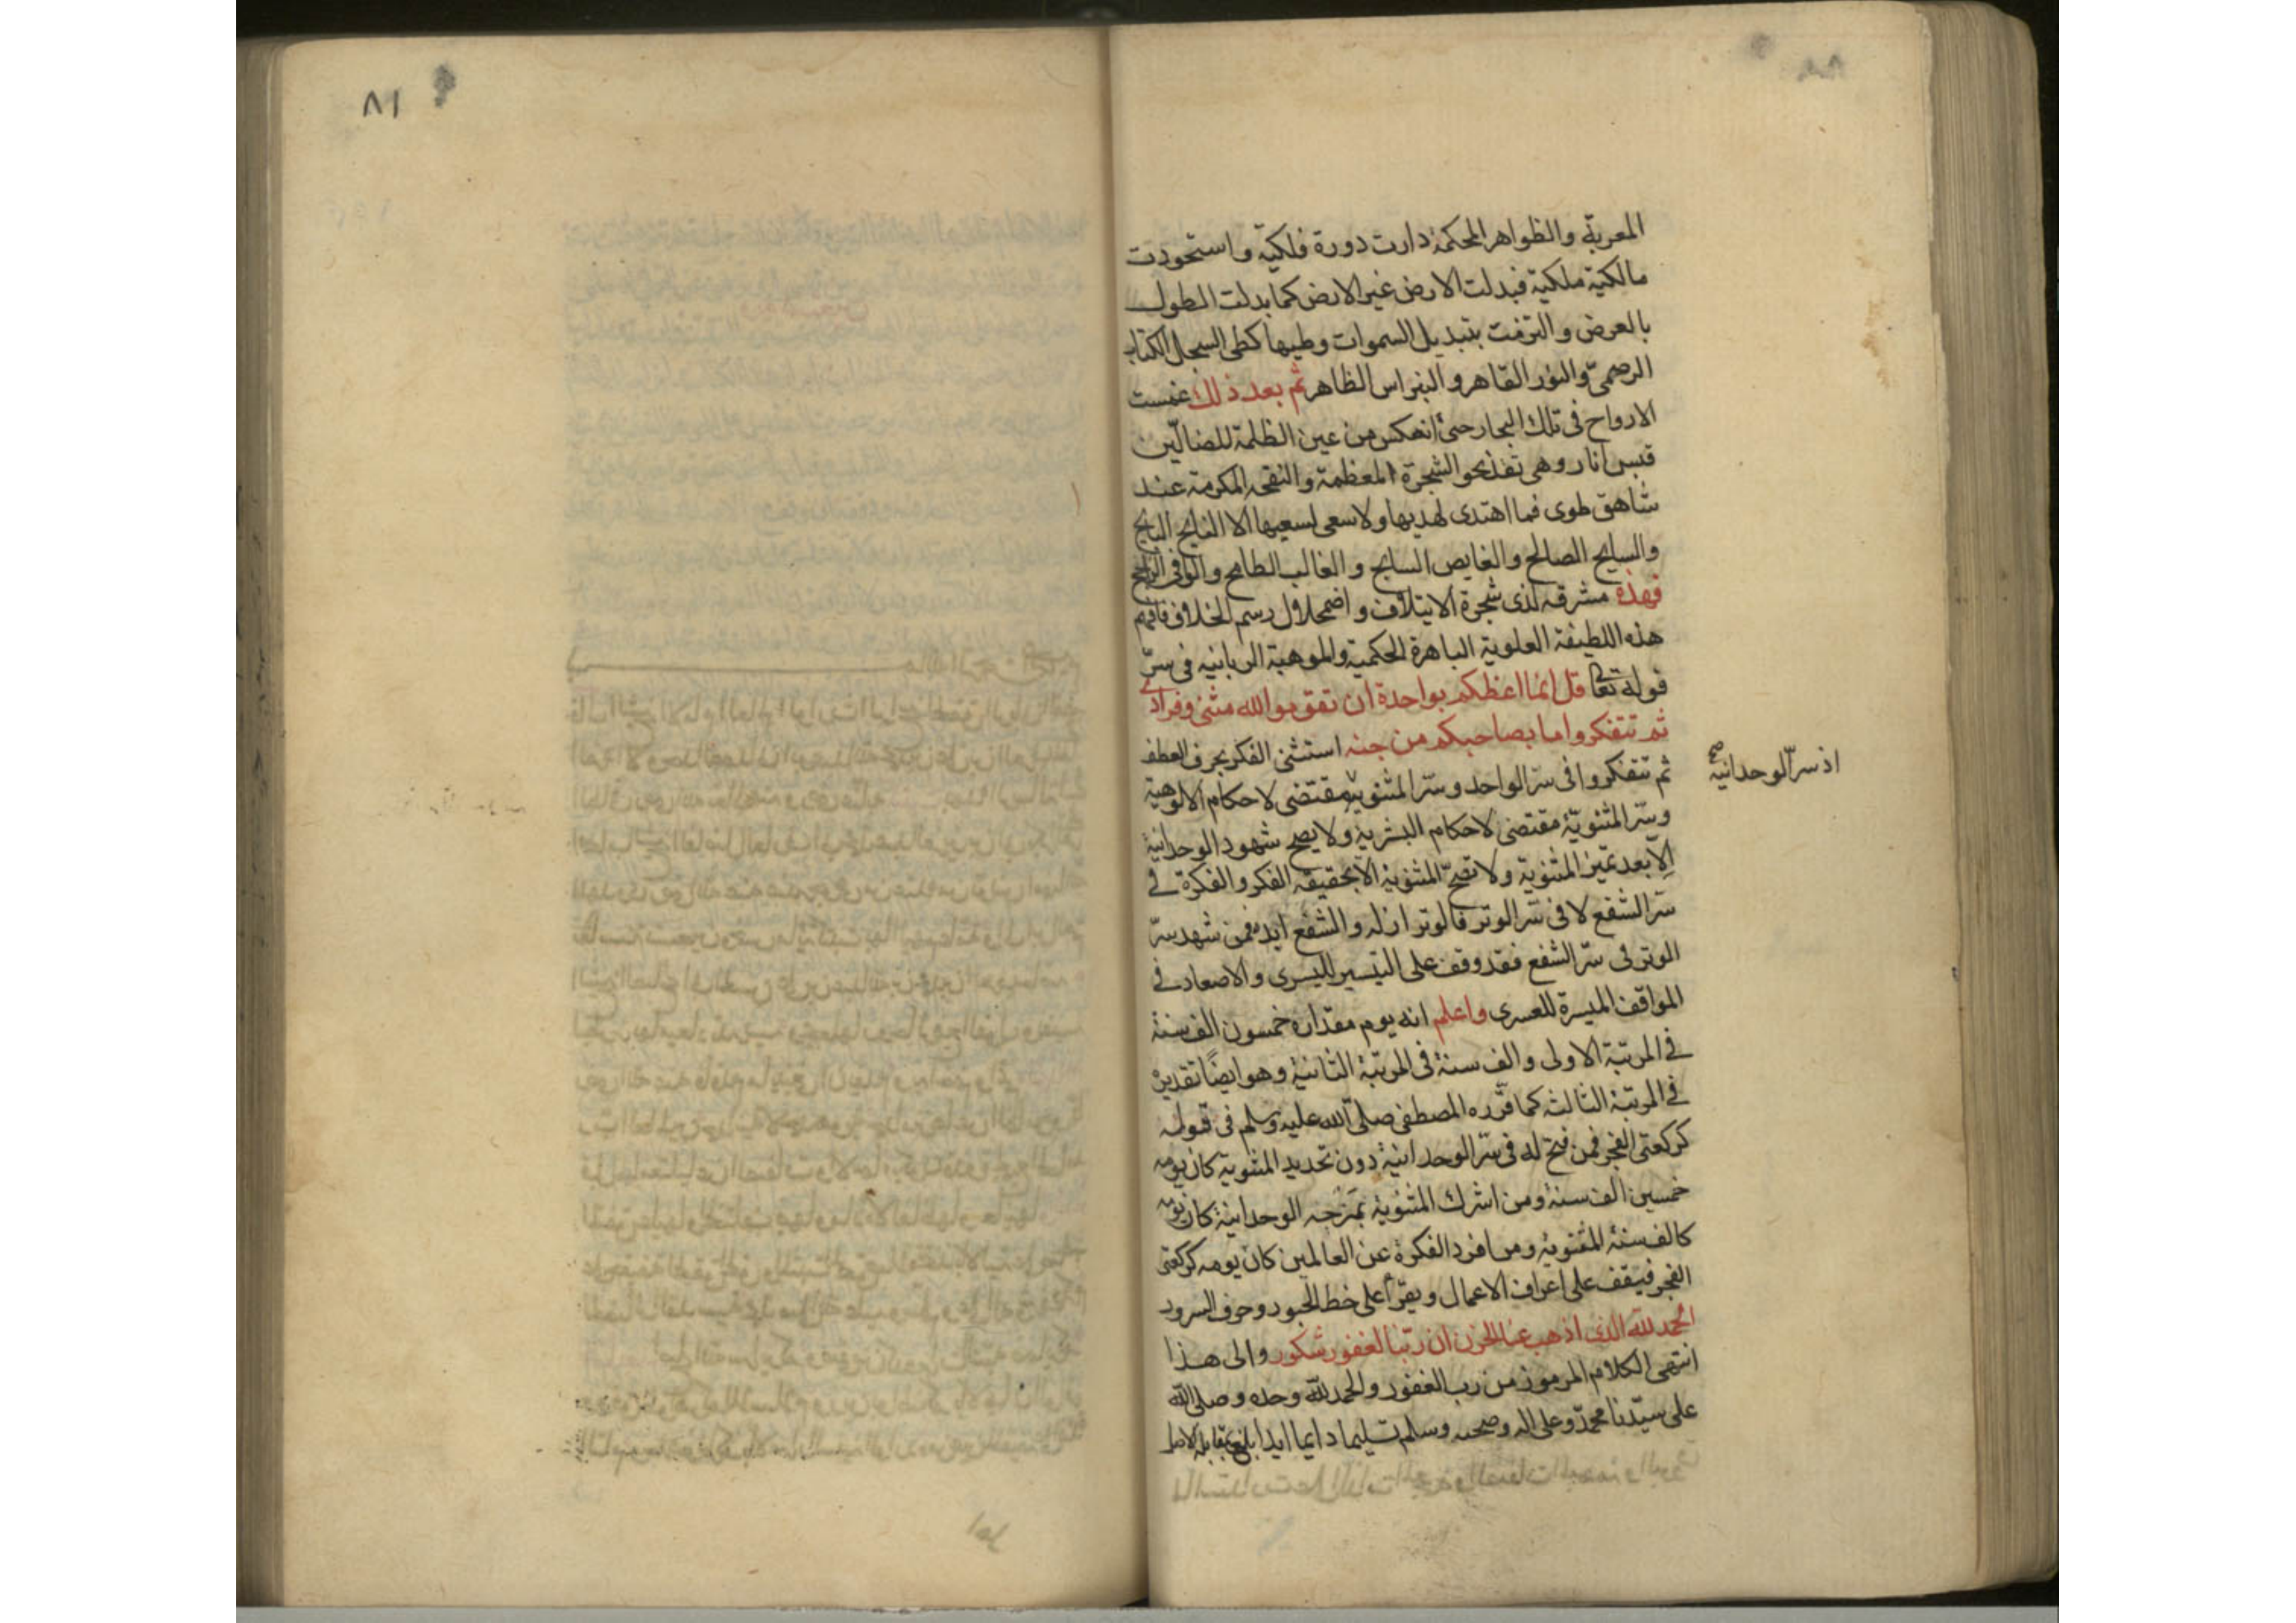 المعربة والظواهر المحكمة دارت دورة فلكية واستحودت
مالكية ملكية فبدلت الارض غير الارض كما بدلت الطول
بالعرض والتزمت بتبديل السموات وطيها كطى السجل الكتاب
والنور القاهر والنبراس الظاهر ثم بعد ذلك غمست
الارواح فى تلك البحار حتى انعكس من عين الظلمة للضالين
قبس انار وهى نحو الشجرة المعظمة المكرمة عند
شاهق طوى فما اهتدى لهديها ولا سعى لسعيها الا
والسايح الصالح والغايص السابح و الغالب الطامح والوافى الراجح
فهذه مشرقه لذى شجرة الايتلاف و اضمحلال رسم الخلاف فافهم
هذه اللطيفة العلوية الباهرة الحكمية والموهبة الربانيه فى سرّ
قوله تعالى قل انما اعظكم بواحدة ان تقوموا لله مثنى وفرادى
ثم تتفكروا ما بصاحبكم من جنه استثنى الفكر بحرف العطف
ثم تتفكروا فى سرّ الواحد وسرّ المثنوية مقتضى لاحكام الالوهية
اذ سرّ الوحدانيه صح
وسرّ المثنويّة مقتضى لاحكام البشرية ولا يصح شهود الوحدانية
الّا بعد تميز المثنوية ولا تصحّ المثنوية الا بحقيقة الفكر والفكرة فى
سرّ الشفع لا فى سرّ الوتر فالوتر ازله والشفع ابده فمن شهد سرّ
الوتر فى سرّ الشفع فقد وقف على التيسير لليسرى والاصعاد فى
المواقف الميسرة للعسرى واعلم انه يوم مقداره خمسون الف سنة
فى المرتبة الاولى والف سنة فى المرتبة الثانية وهو ايضًا تقديره
فى المرتبة الثالثة كما قرّره المصطفى صلى الله عليه وسلم فى قوله
كركعتى الفجر فمن فتح له فى سرّ الوحدانية دون تحديد المثنوية كان يومه
خمسين الف سنة ومن اشرك المثنوية بمزجه الوحدانية كان يومه
كالف سنة المثنوية ومن افرد الفكرة عن العالمين كان يومه كركعتى
الفجر فيقف على اعراف الاعمال ويقرأ على خط الحبور وحرف السرور
الحمد لله الذى اذهب عنا الحزن ان ربّنا لغفور شكور والى هذا
انتهى الكلام المرموز من رب الغفور والحمد لله وحده وصلى الله
على سيّدنا محمّد وعلى اله وصحبه وسلم تسليما دايما ابدا بلغ مقابلة
٨١